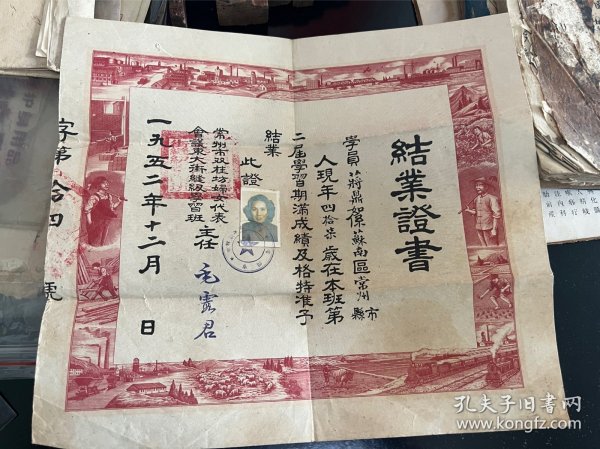 結業證書
學員蔣鼎如係蘇南區常州市縣
人現年四拾柒歲在本班第
二届學習期滿成績及格特准予
結業
此證
常州市双桂坊婦女代表
會議東大街縫紉學習班
主任
毛雲君
一九五二年十二月 日
字第拾四號
孔夫子旧书网
www.kongfz.com